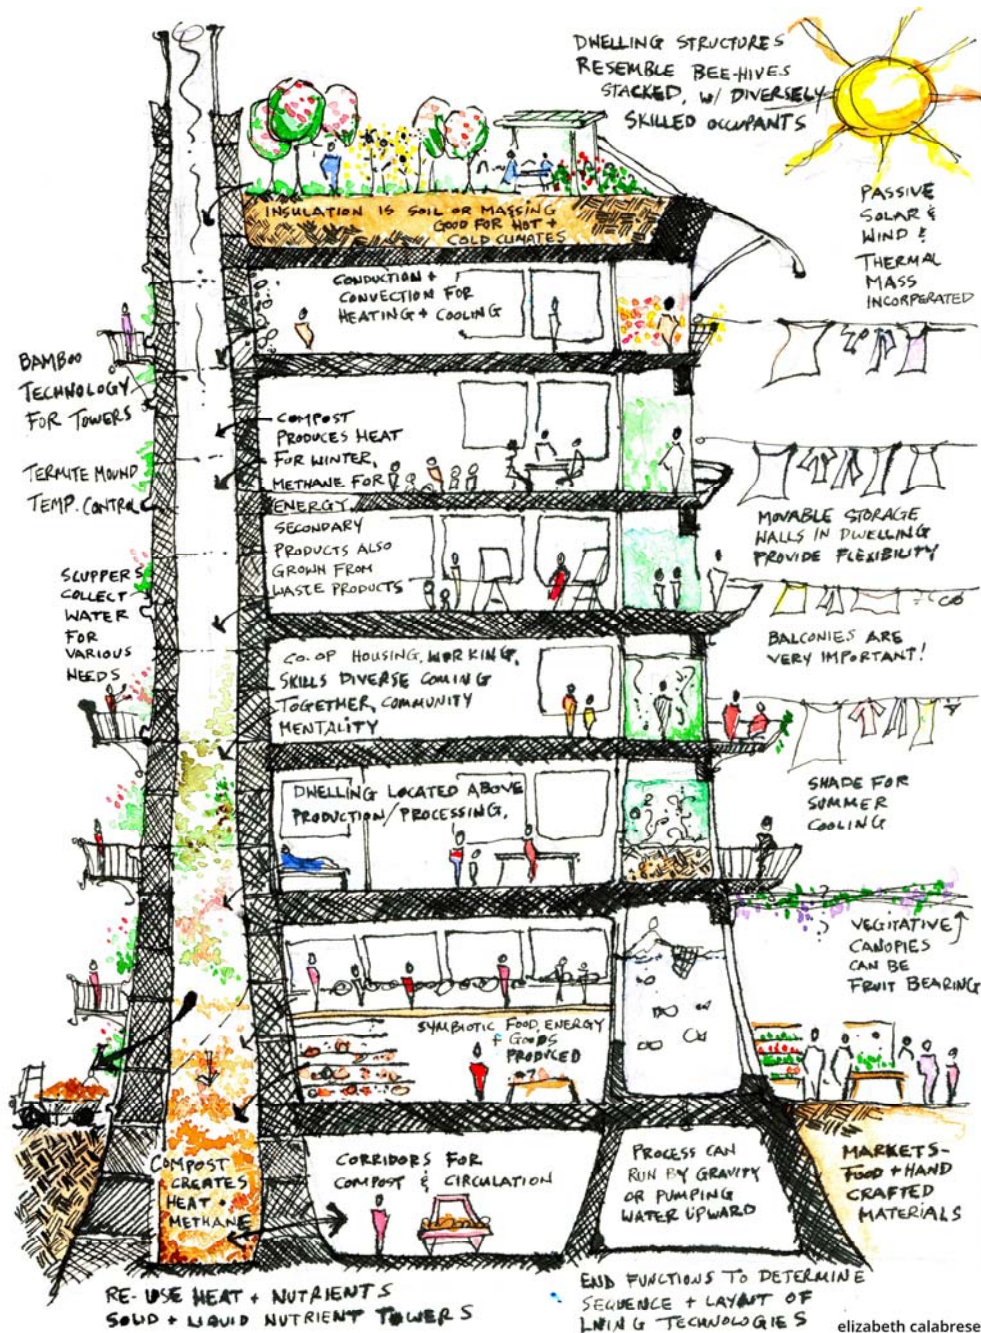 DWELLING STRUCTURES
RESEMBLE BEE-HIVES
STACKED, W/ DIVERSELY
SKILLED OCCUPANTS
PASSIVE
SOLAR &
WIND &
THERMAL
MASS
INCORPERATED
INSULATION IS SOIL OR MASSING
GOOD FOR HOT +
COLD CLIMATES
CONDUCTION +
CONVECTION FOR
HEATING + COOLING
BAMBOO
TECHNOLOGY
FOR TOWERS
TERMITE MOUND
TEMP. CONTROL
COMPOST
PRODUCES HEAT
FOR WINTER,
METHANE FOR
ENERGY
SECONDARY
PRODUCTS ALSO
GROWN FROM
WASTE PRODUCTS
MOVABLE STORAGE
WALLS IN DWELLING
PROVIDE FLEXIBILITY
SCUPPERS
COLLECT
WATER
FOR
VARIOUS
NEEDS
BALCONIES ARE
VERY IMPORTANT!
CO-OP HOUSING, WORKING,
SKILLS DIVERSE COMING
TOGETHER, COMMUNITY
MENTALITY
DWELLING LOCATED ABOVE
PRODUCTION/PROCESSING.
SHADE FOR
SUMMER
COOLING
VEGITATIVE
CANOPIES
CAN BE
FRUIT BEARING
SYMBIOTIC FOOD, ENERGY
+ GOODS
PRODUCED
COMPOST
CREATES
HEAT +
METHANE
CORRIDORS FOR
COMPOST & CIRCULATION
PROCESS CAN
RUN BY GRAVITY
OR PUMPING
WATER UPWARD
MARKETS-
FOOD + HAND
CRAFTED
MATERIALS
RE-USE HEAT + NUTRIENTS
SOLID + LIQUID NUTRIENT TOWERS
END FUNCTIONS TO DETERMINE
SEQUENCE + LAYOUT OF
LIVING TECHNOLOGIES
elizabeth calabrese